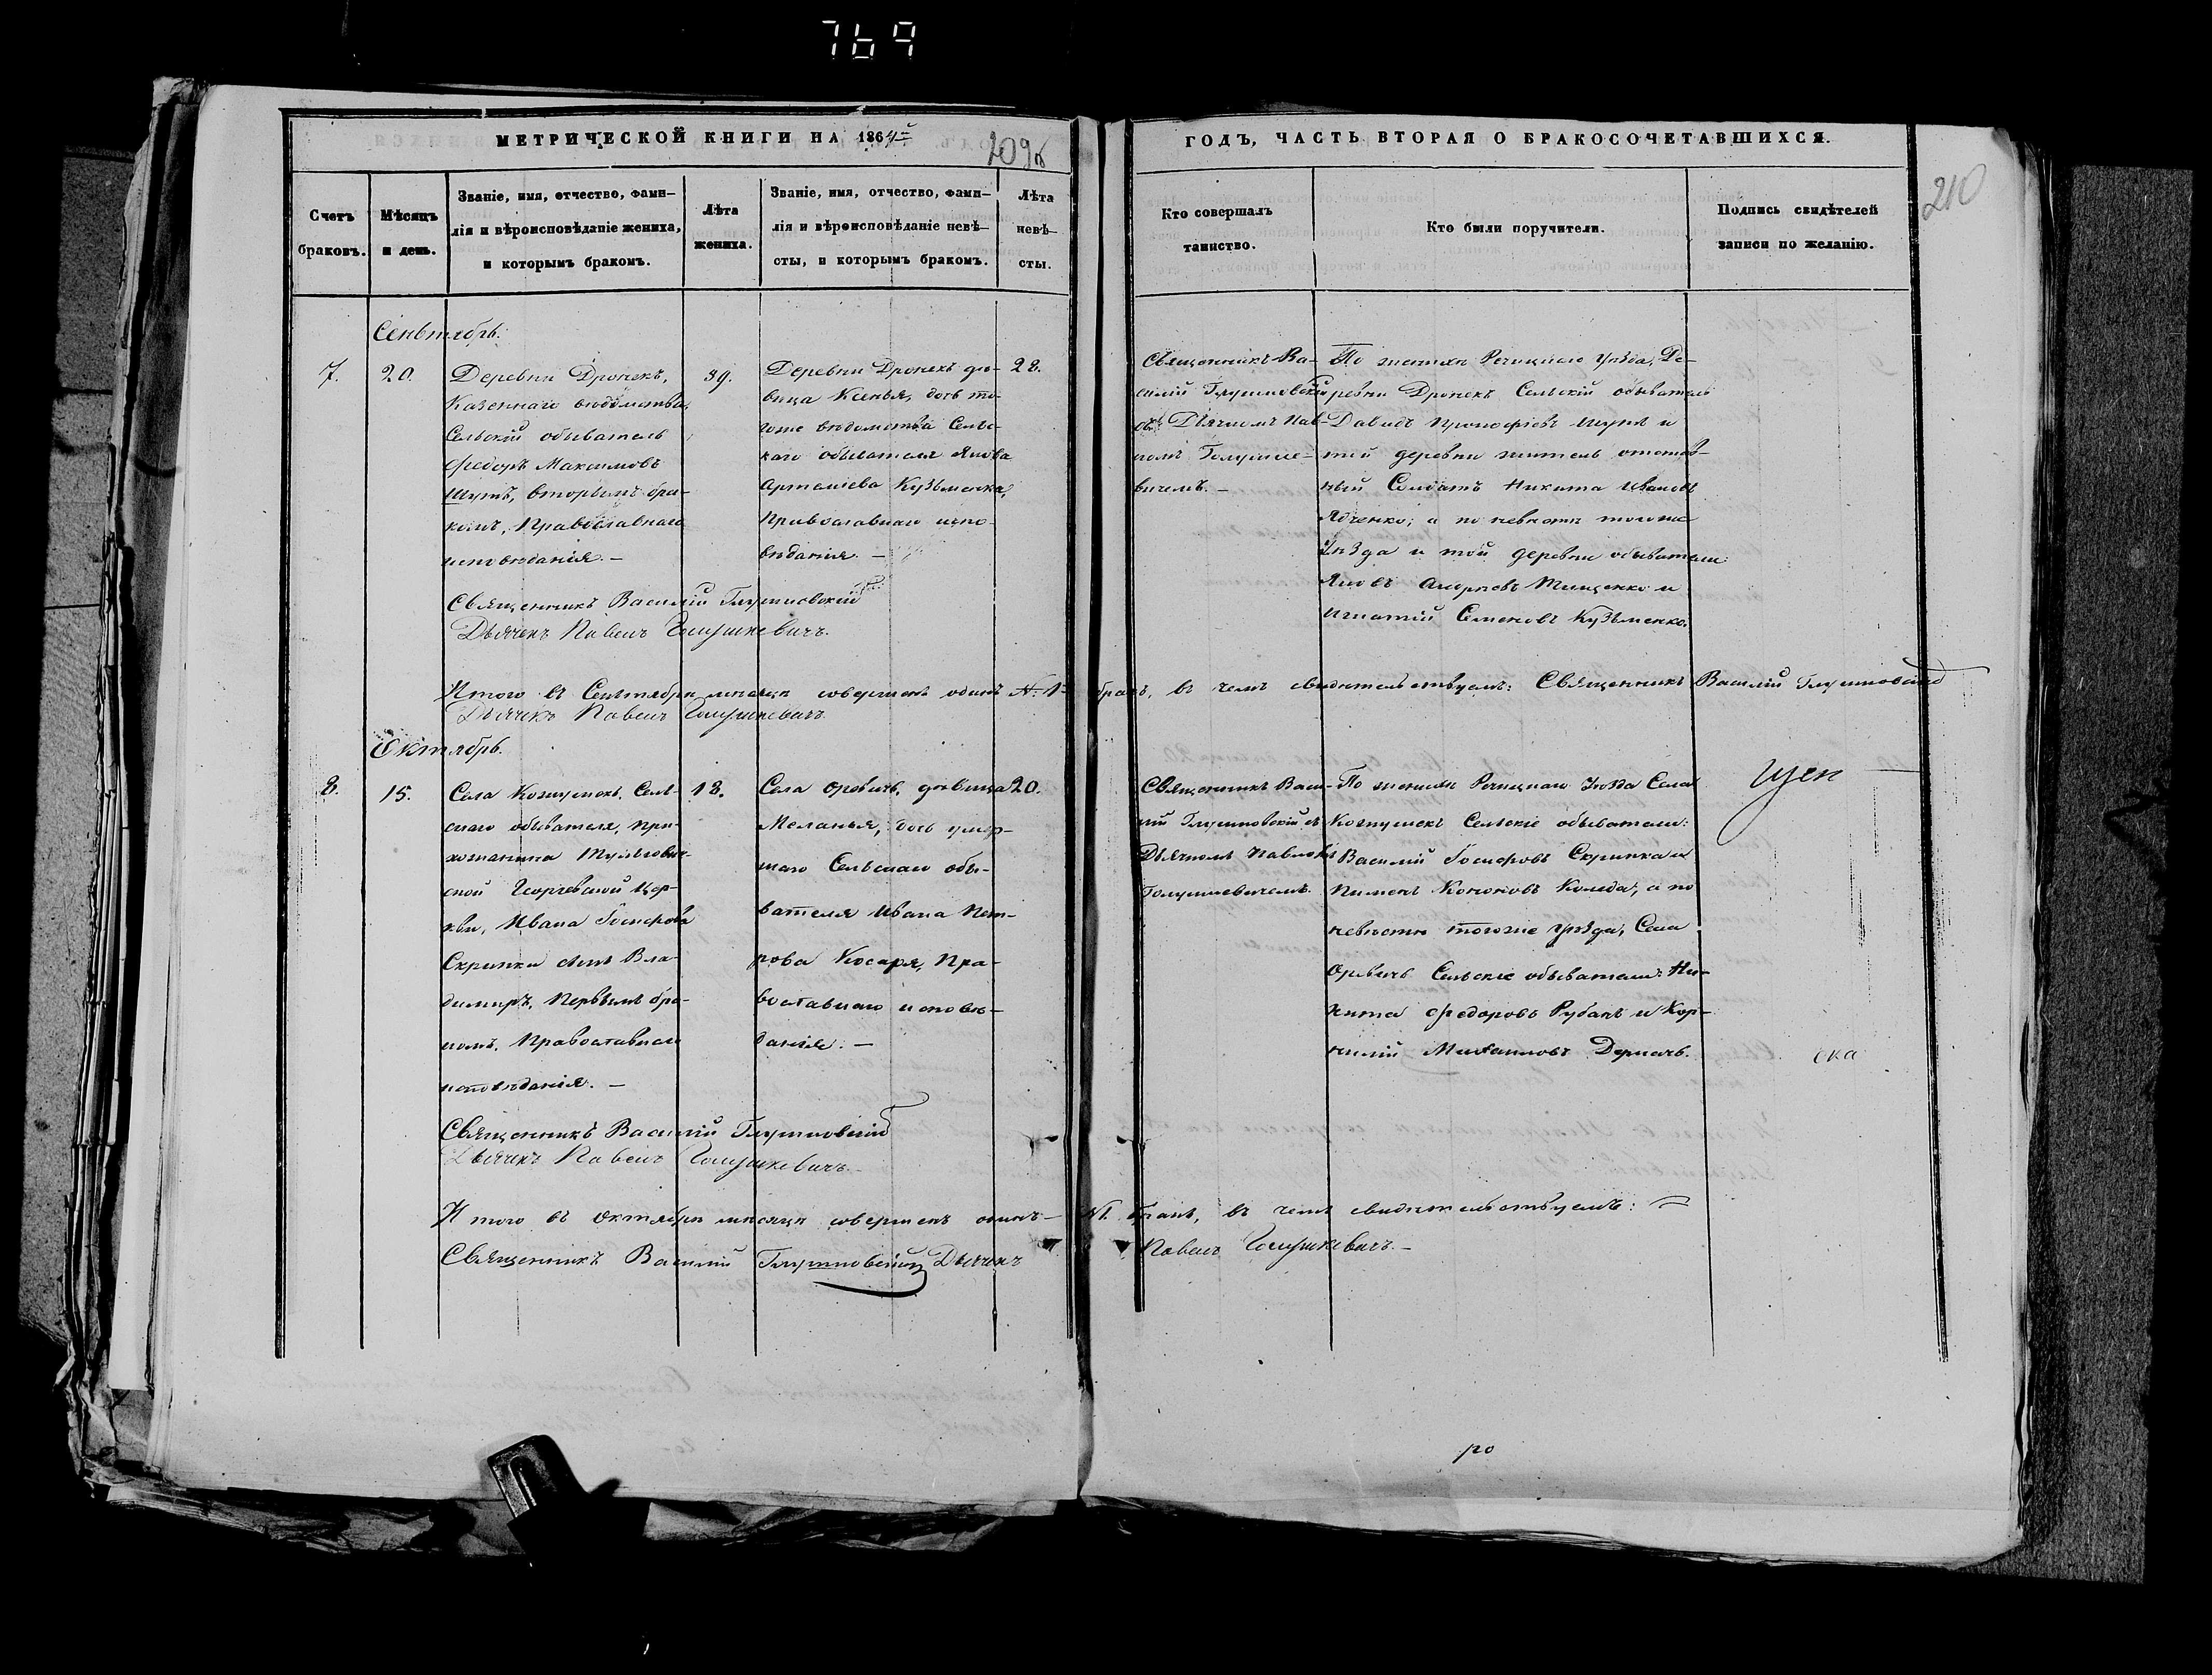 769
МЕТРИЧЕСКОЙ КНИГИ НА 1864й
209об
ГОДЪ, ЧАСТЬ ВТОРАЯ О БРАКОСОЧЕТАВШИХСЯ.
210
Счетъ браковъ.
Мѣсяцъ и день.
Званіе, имя, отчество, фами-
лія и вѣроисповѣданіе жениха,
и которымъ бракомъ.
Лѣта
жениха.
Званіе, имя, отчество, фами-
лія и вѣроисповѣданіе невѣ-
сты, и которымъ бракомъ.
Лѣта
невѣ-
сты.
Кто совершалъ
таинство.
Кто были поручители.
Подпись свидѣтелей
записи по желанію.
Сеньтябрь.
7.
20.
Деревни Дронекъ,
Казеннаго вѣдомства
Сельскій обыватель
Федоръ Максимовъ
Шутъ, вторымъ бра-
комъ, Православнаго
исповѣданія. —
39.
Деревни Дронекъ дѣ-
вица Ксенья, дочь то-
гоже вѣдомства Сельс-
каго обывателя Якова
Артеміева Кузьменка,
Православнаго испо-
вѣданія. —
28.
Священникъ Ва-
силій Глушковскій
съ Дьячкомъ Пав-
ломъ Голушке-
вичемъ. —
По женихѣ Речицкаго Уѣзда, Де-
ревни Дронекъ Сельскій обыватель
Давидъ Прокофіевъ Шутъ и
той деревни житель отстав-
ный Солдатъ Никита Ивановъ
Ядченко; а по невѣстѣ тогоже
Уѣзда и той деревни обыватели
Яковъ Тищенко и
Игнатій Семеновъ Кузьменко.
Священникъ Василій Глушковскій
Дьячекъ Павелъ Голушкевичъ.
Итого въ Сентябрѣ мѣсяцѣ совершенъ одинъ №1. бракъ, въ чемъ свидѣтельствуемъ: Священникъ Василій Глушковскій
Дьячекъ Павелъ Голушкевичъ.
Октябрь.
8.
15.
Села Кожушекъ, Сель-
скаго обывателя, при-
хожанина Тульгович-
ской Георгіевской Цер-
кви, Ивана Госифова
Скрипки сынъ Вла-
димиръ, первымъ бра-
комъ, Православнаго
исповѣданія. —
18.
Села Оревичъ, дѣвица
Меланья, дочь умер-
шаго Сельскаго обы-
вателя Ивана Пет-
рова Косаря, Пра-
вославнаго исповѣ-
данія. —
20.
Священникъ Васи-
лій Глушковскій съ
Дьячкомъ Павломъ
Голушкевичемъ.
По женихѣ Речицкаго Уѣзда Села
Кожушекъ Сельскіе обыватели:
Василій Госифовъ Скрипка и
Пименъ Кононовъ Коледа, а по
невѣстѣ тогоже Уѣзда, Села
Оревичъ Сельскіе обыватели: Ни-
кита Федоровъ Рубанъ и Кор-
нилій Михайловъ Деркачъ.
щен
ска
Священникъ Василій Глушковскій
Дьячекъ Павелъ Голушкевичъ.
Итого въ Октябрѣ мѣсяцѣ совершенъ одинъ — №1. бракъ, въ чемъ свидѣтельствуемъ:
Священникъ Василій Глушковскій Дьячекъ Павелъ Голушкевичъ. —
ро